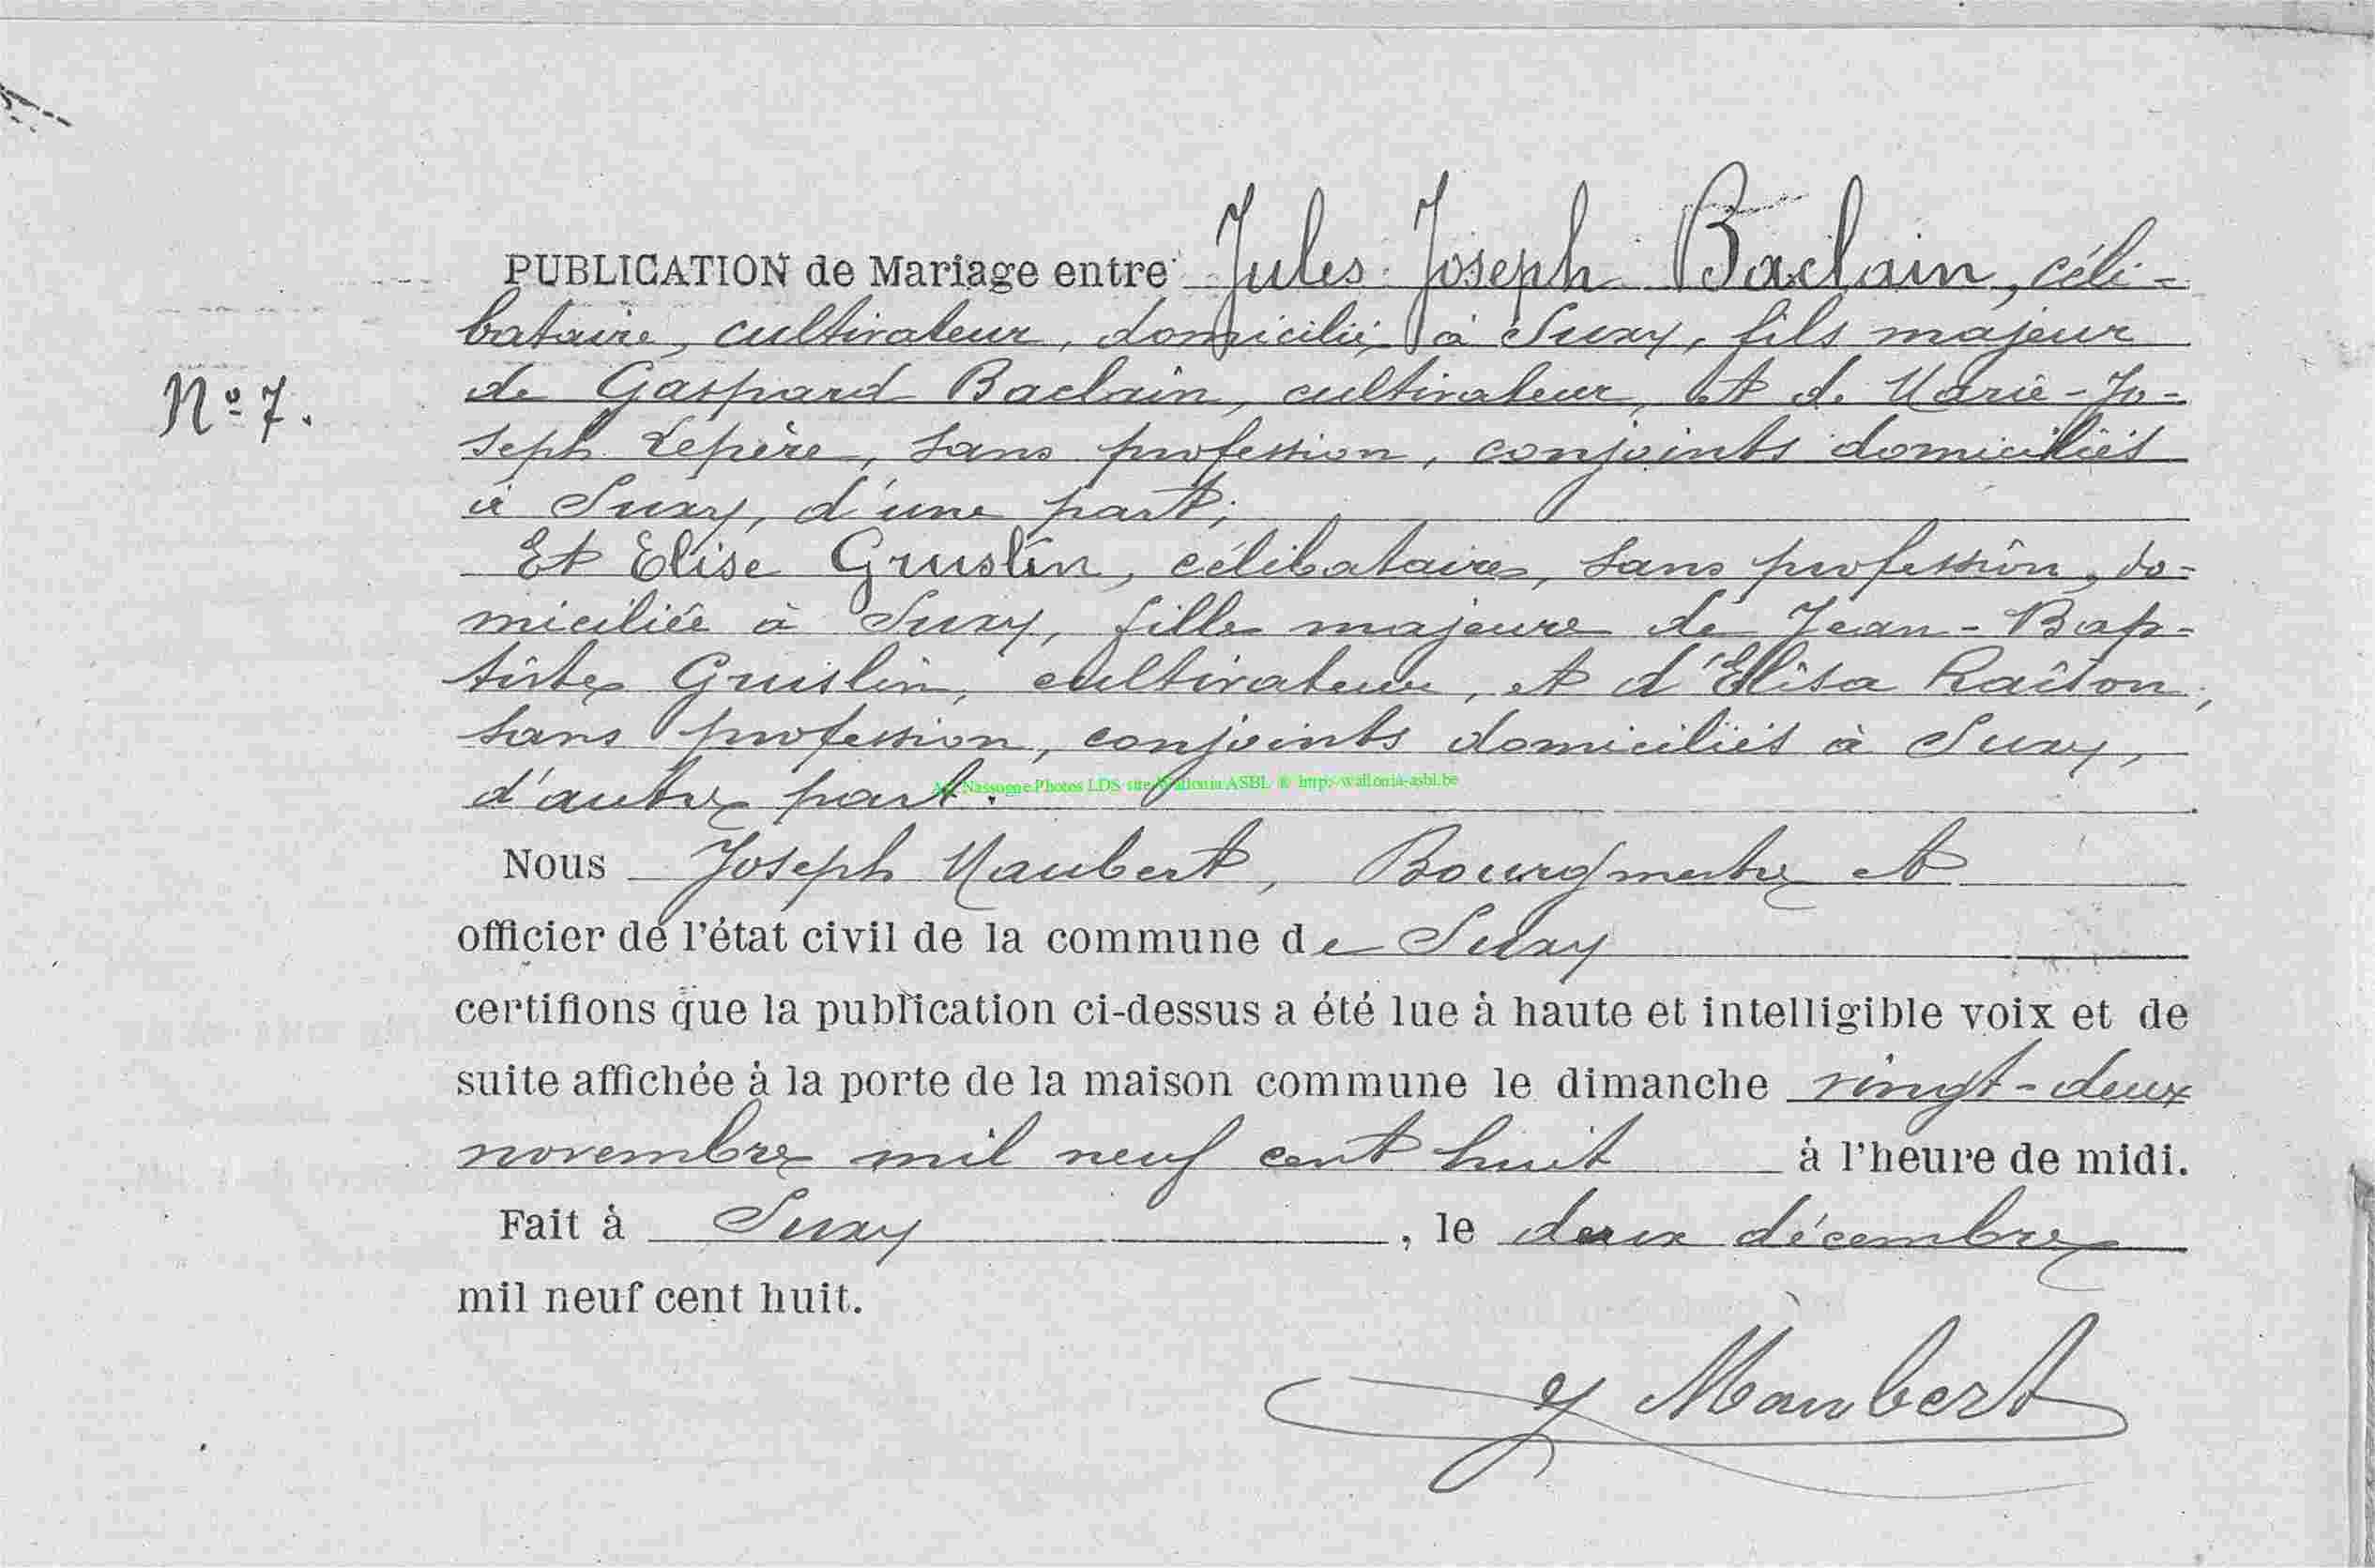 PUBLICATION de Mariage entre Jules Joseph Baclain, céli-
bataire, cultivateur, domicilié à Suxy, fils majeur
N° 7.
de Gaspard Baclain, cultivateur, et de Marie-Jo-
seph Lepère, sans profession, conjoints domiciliés
à Suxy, d'une part;
Et Elise Gruslin, célibataire, sans profession, do-
miciliée à Suxy, fille majeure de Jean-Bap-
tiste Gruslin, cultivateur, et d'Elisa Raiton,
sans profession, conjoints domiciliés à Suxy,
d'autre part.
Nassogne Photos LDS site Wallonia ASBL © http://wallonia-asbl.be
Nous Joseph Maubert, Bourgmestre et
officier de l'état civil de la commune de Suxy
certifions que la publication ci-dessus a été lue à haute et intelligible voix et de
suite affichée à la porte de la maison commune le dimanche vingt-deux
novembre mil neuf cent huit à l'heure de midi.
Fait à Suxy, le deux décembre
mil neuf cent huit.
J Maubert